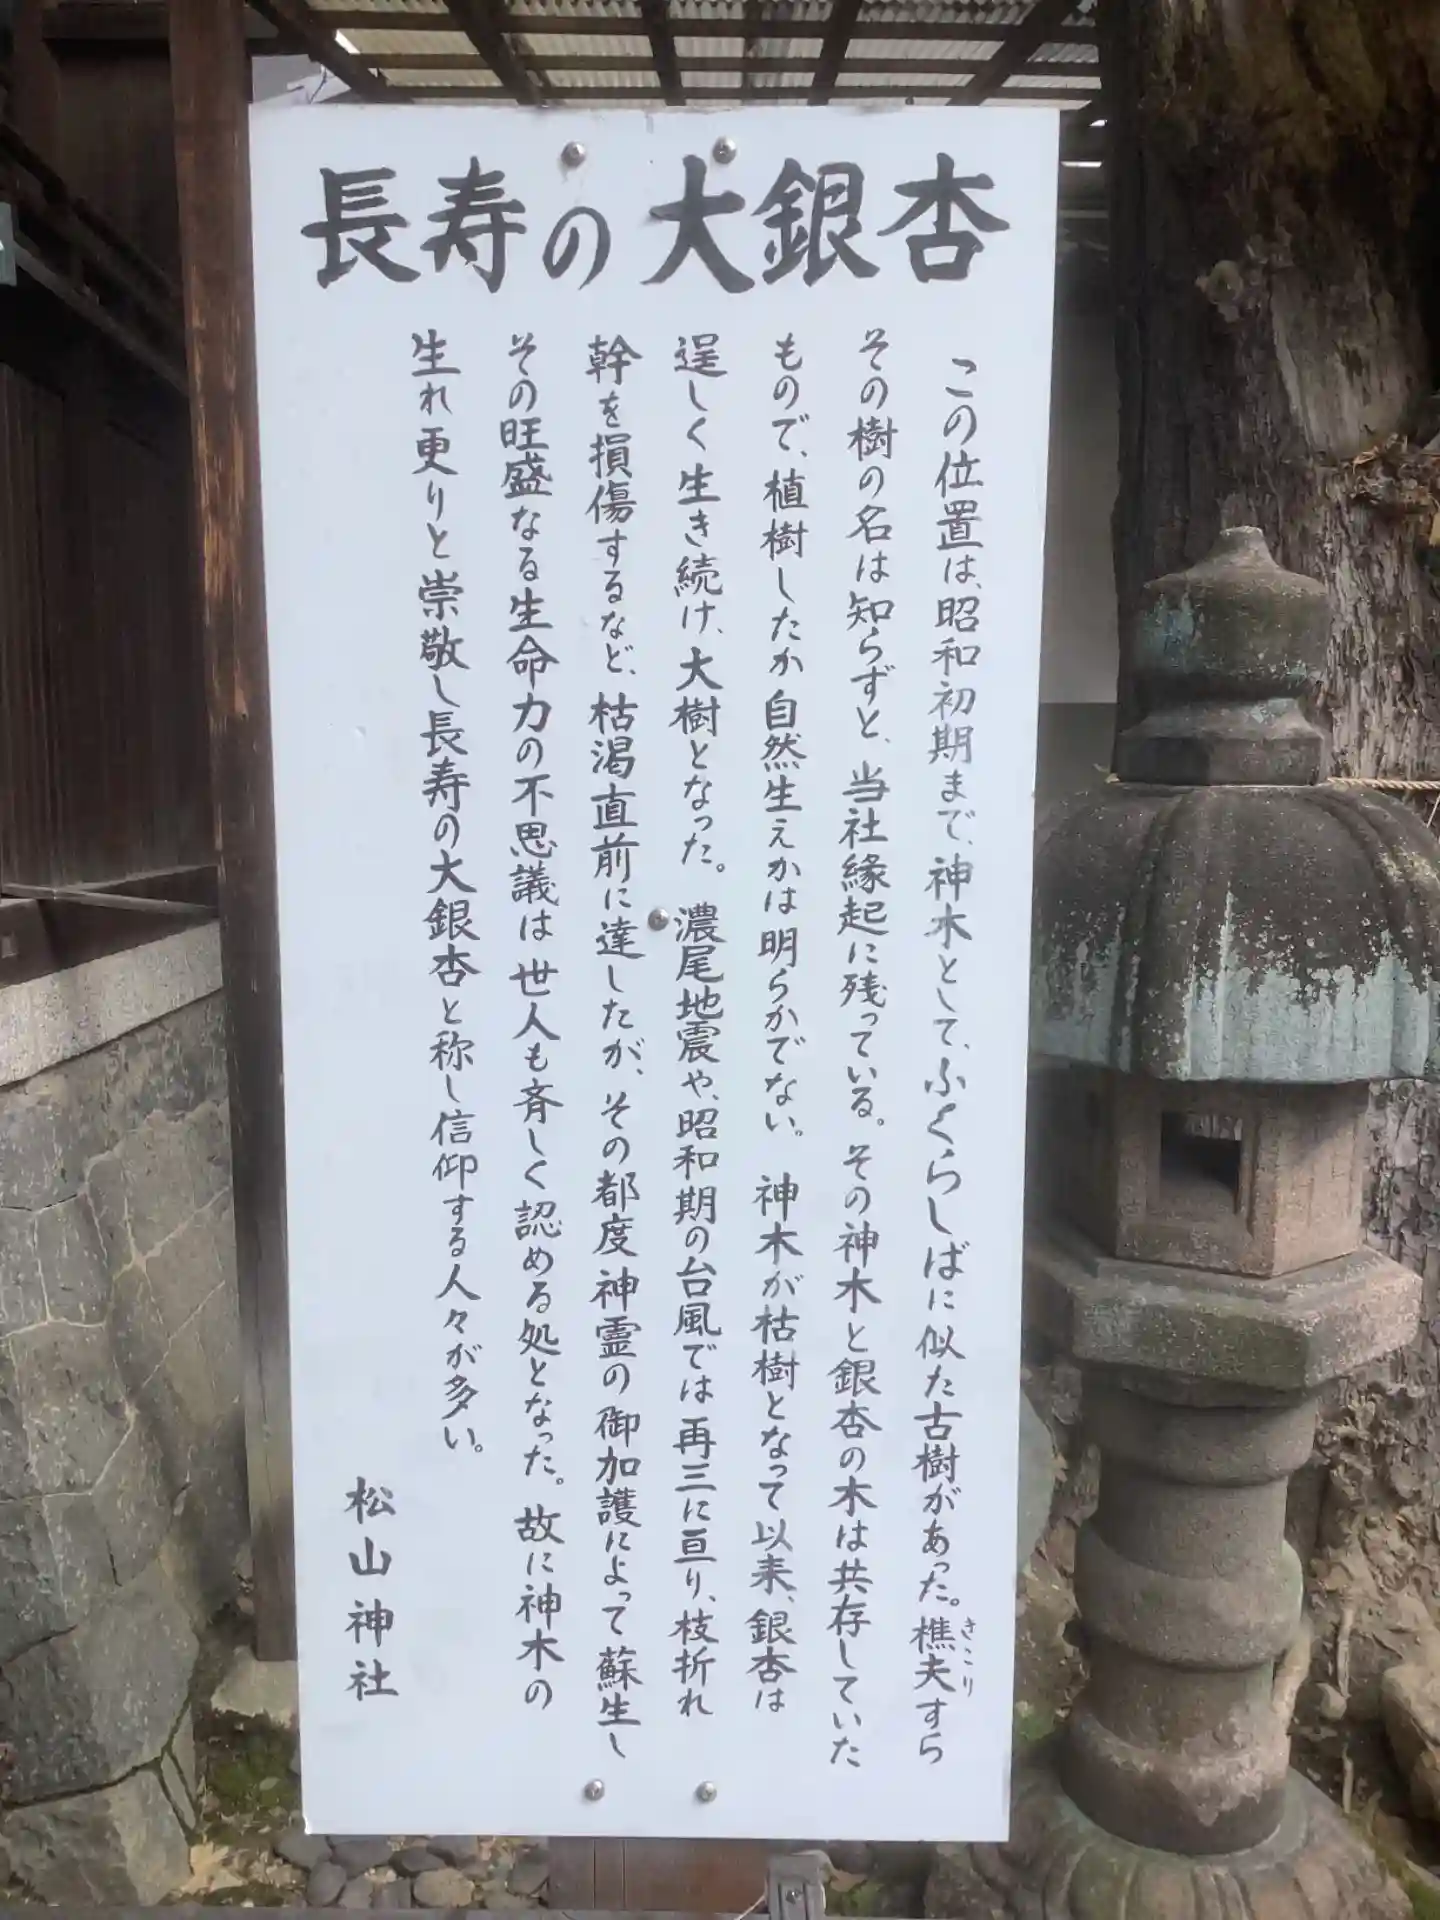 長寿の大銀杏
この位置は、昭和初期まで、神木として、ふくらしばに似た古樹があった。樵夫すら
きこり
その樹の名は知らずと、当社縁起に残っている。その神木と銀杏の木は共存していた
もので、植樹したか自然生えかは明らかでない。神木が枯樹となって以来、銀杏は
逞しく生き続け、大樹となった。濃尾地震や、昭和期の台風では再三に亘り、枝折れ
幹を損傷するなど、枯渇直前に達したが、その都度神霊の御加護によって蘇生し
その旺盛なる生命力の不思議は世人も斉しく認める処となった。故に神木の
生れ更りと崇敬し長寿の大銀杏と称し信仰する人々が多い。
松山神社